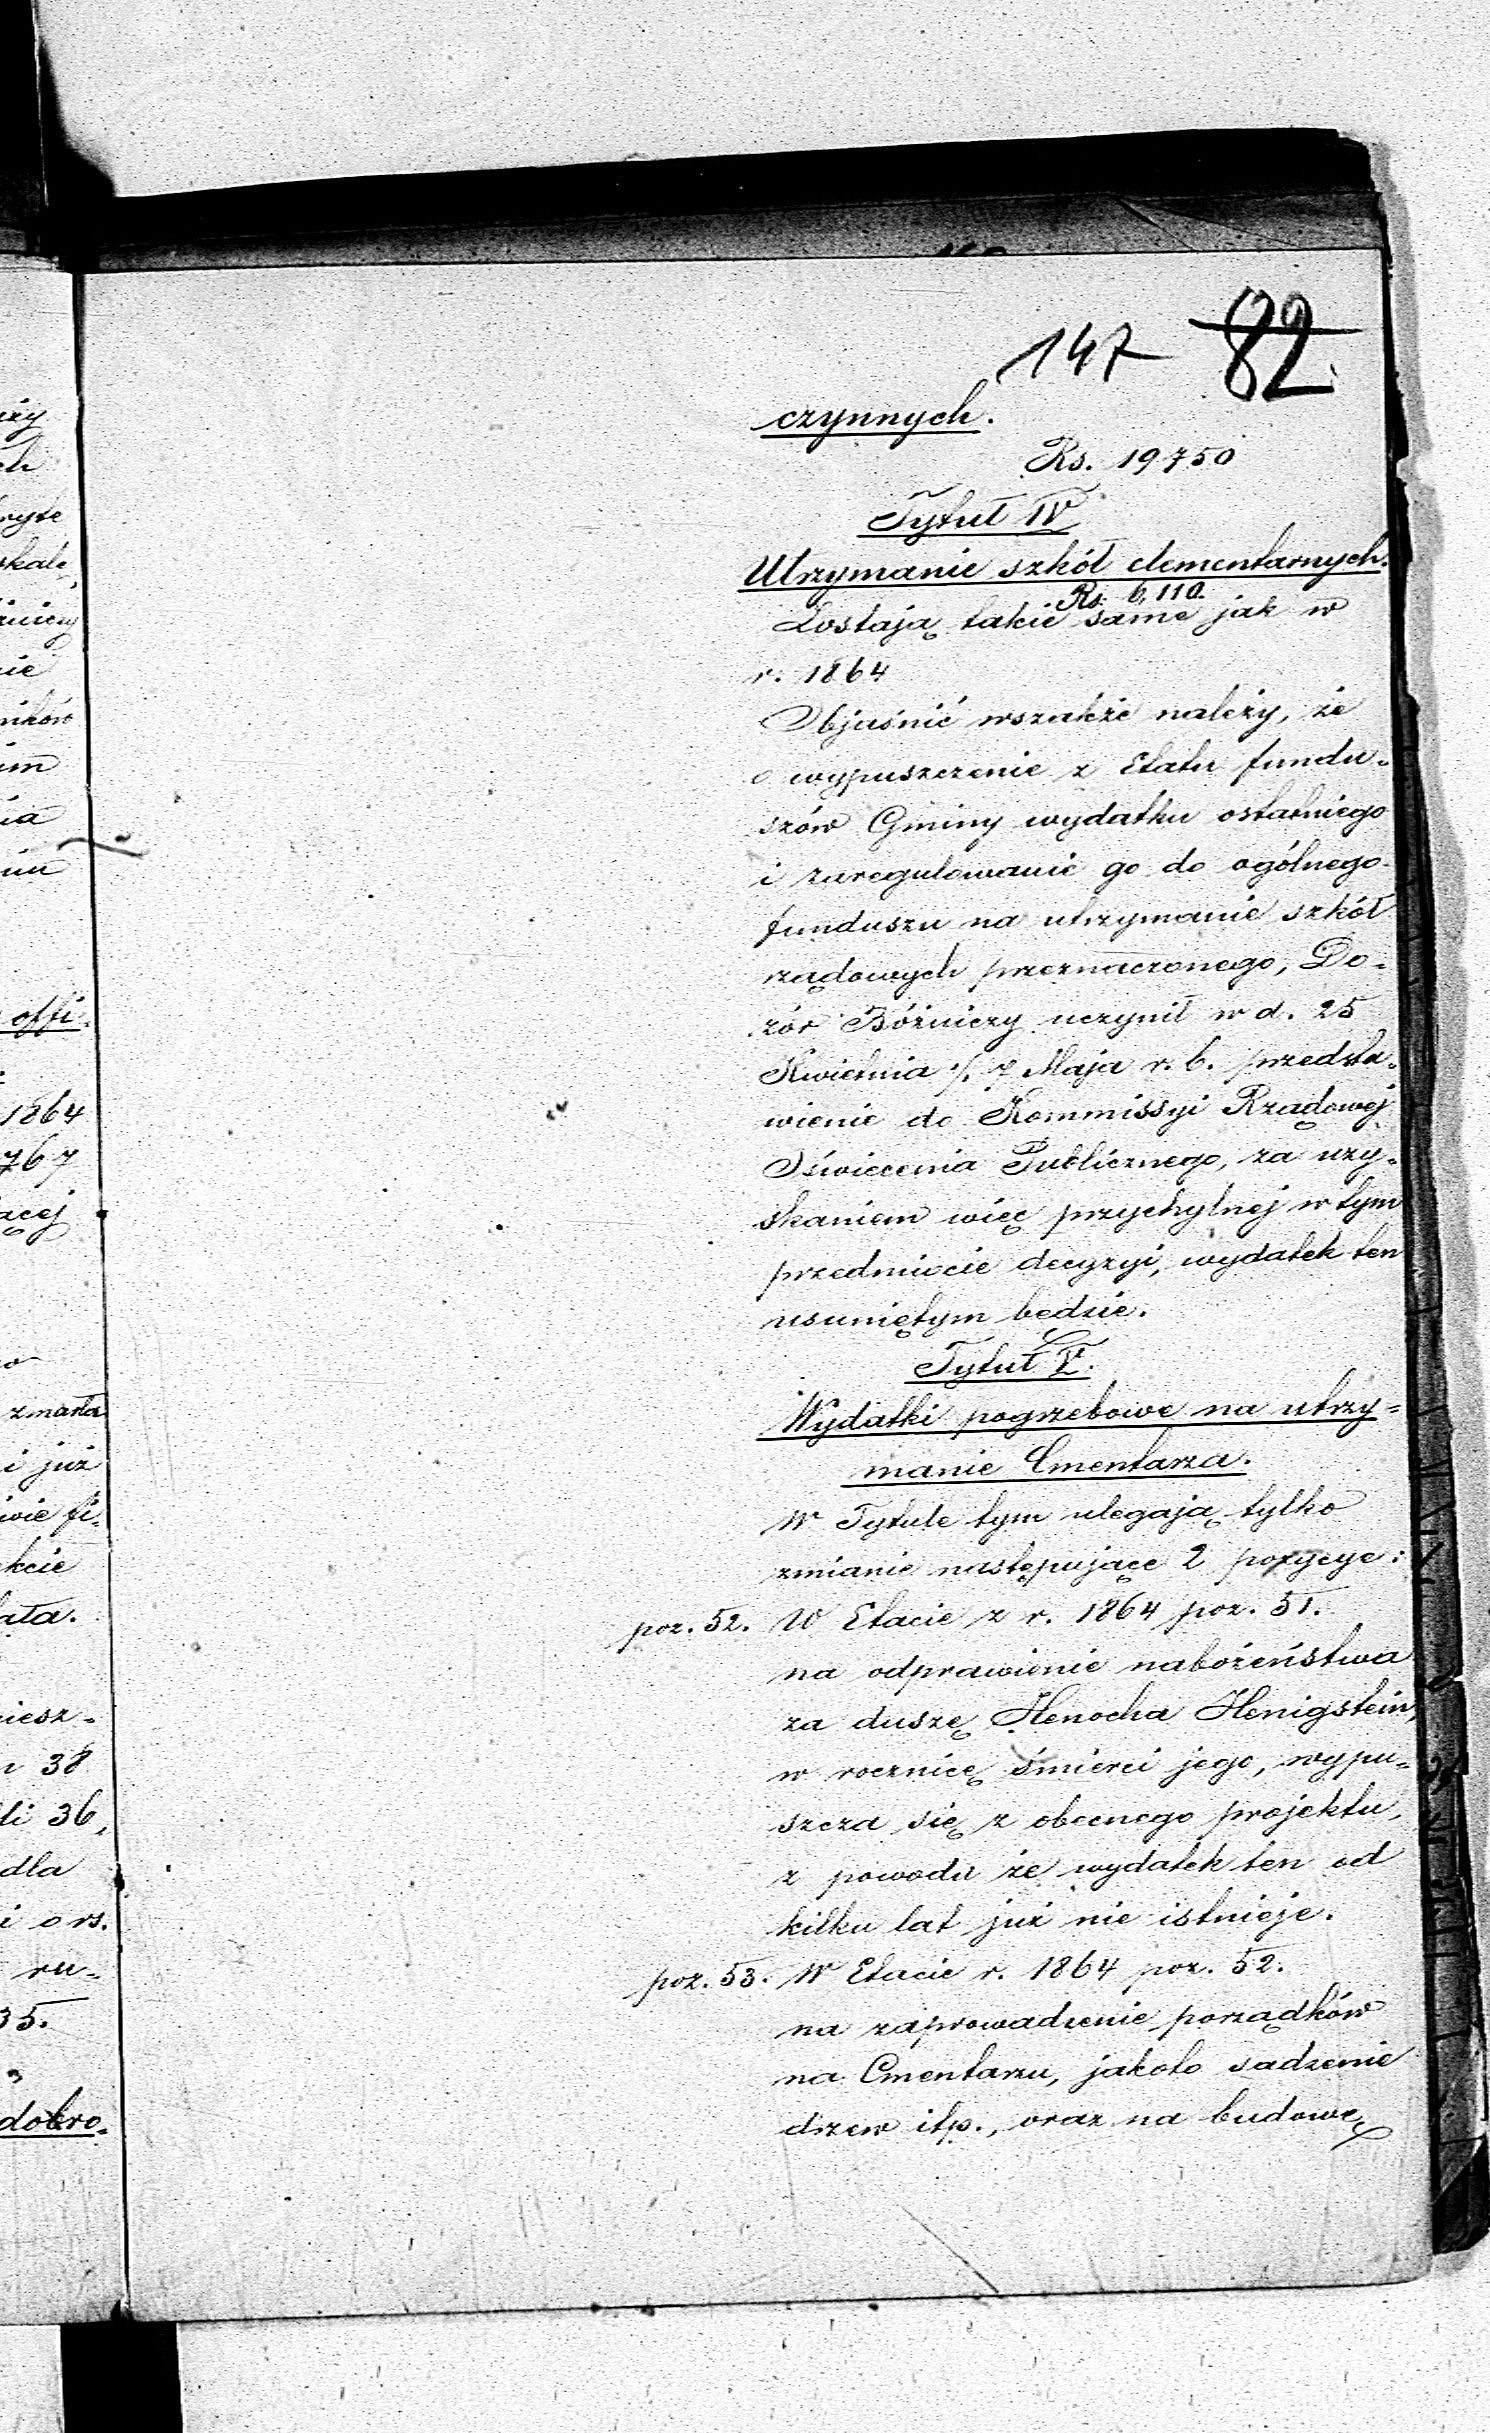 147 82.
czynnych.
Rs. 19750
Tytuł IV
Utrzymanie szkół elementarnych.
Rs. 6,110.
Zostają takie same jak w
r. 1864
Objaśnić wszakże należy, że
o wypuszczenie z Etatu fundu-
szów Gminy wydatku ostatniego
i zaregulowanie go do ogólnego
funduszu na utrzymanie szkół
rządowych przeznaczonego, Do-
zór Bóżniczy uczynił w d. 25
Kwietnia /. 7 Maja r. b. przedsta-
wienie do Kommissyi Rządowej
Oświecenia Publicznego, za uzy-
skaniem więc przychylnej w tym
przedmiocie decyzyi, wydatek ten
usuniętym będzie.
Tytuł V.
Wydatki pogrzebowe na utrzy=
manie Cmentarza.
W Tytule tym ulegają tylko
zmianie następujące 2 pozycye:
poz. 52. W Etacie z r. 1864 poz. 51.
na odprawienie nabożeństwa
za duszę Henocha Henigstein,
w rocznicę śmierci jego, wypu-
szcza się z obecnego projektu,
z powodu że wydatek ten od
kilku lat już nie istnieje.
poz. 53. W Etacie r. 1864 poz. 52.
na zaprowadzenie porządków
na Cmentarzu, jakoto sadzenie
drzew itp., oraz na budowę
offi-
1864
767
zmarła
i już
38
36,
dla
i o rs.
ru-
35.
dobro-